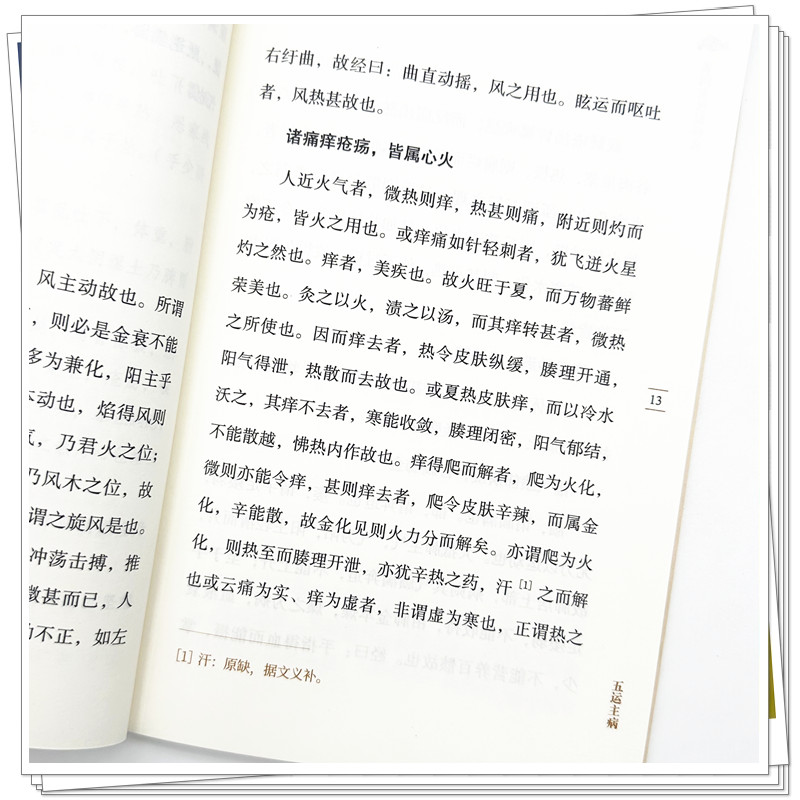 风主动故也。所谓
，则必是金衰不能
多为兼化，阳主乎
本动也，焰得风则
气，乃君火之位；
乃风木之位，故
谓之旋风是也。
冲荡击搏，推
微甚而已，人
动不正，如左
右纡曲，故经曰：曲直动摇，风之用也。眩运而呕吐
者，风热甚故也。
诸痛痒疮疡，皆属心火
人近火气者，微热则痒，热甚则痛，附近则灼而
为疮，皆火之用也。或痒痛如针轻刺者，犹飞迸火星
灼之然也。痒者，美疾也。故火旺于夏，而万物蕃鲜
荣美也。灸之以火，渍之以汤，而其痒转甚者，微热
之所使也。因而痒去者，热令皮肤纵缓，腠理开通，
阳气得泄，热散而去故也。或夏热皮肤痒，而以冷水
沃之，其痒不去者，寒能收敛，腠理闭密，阳气郁结，
不能散越，怫热内作故也。痒得爬而解者，爬为火化，
微则亦能令痒，甚则痒去者，爬令皮肤辛辣，而属金
化，辛能散，故金化见则火力分而解矣。亦谓爬为火
化，则热至而腠理开泄，亦犹辛热之药，汗[1]之而解
也或云痛为实、痒为虚者，非谓虚为寒也，正谓热之
[1] 汗：原缺，据文义补。
13
五运主病